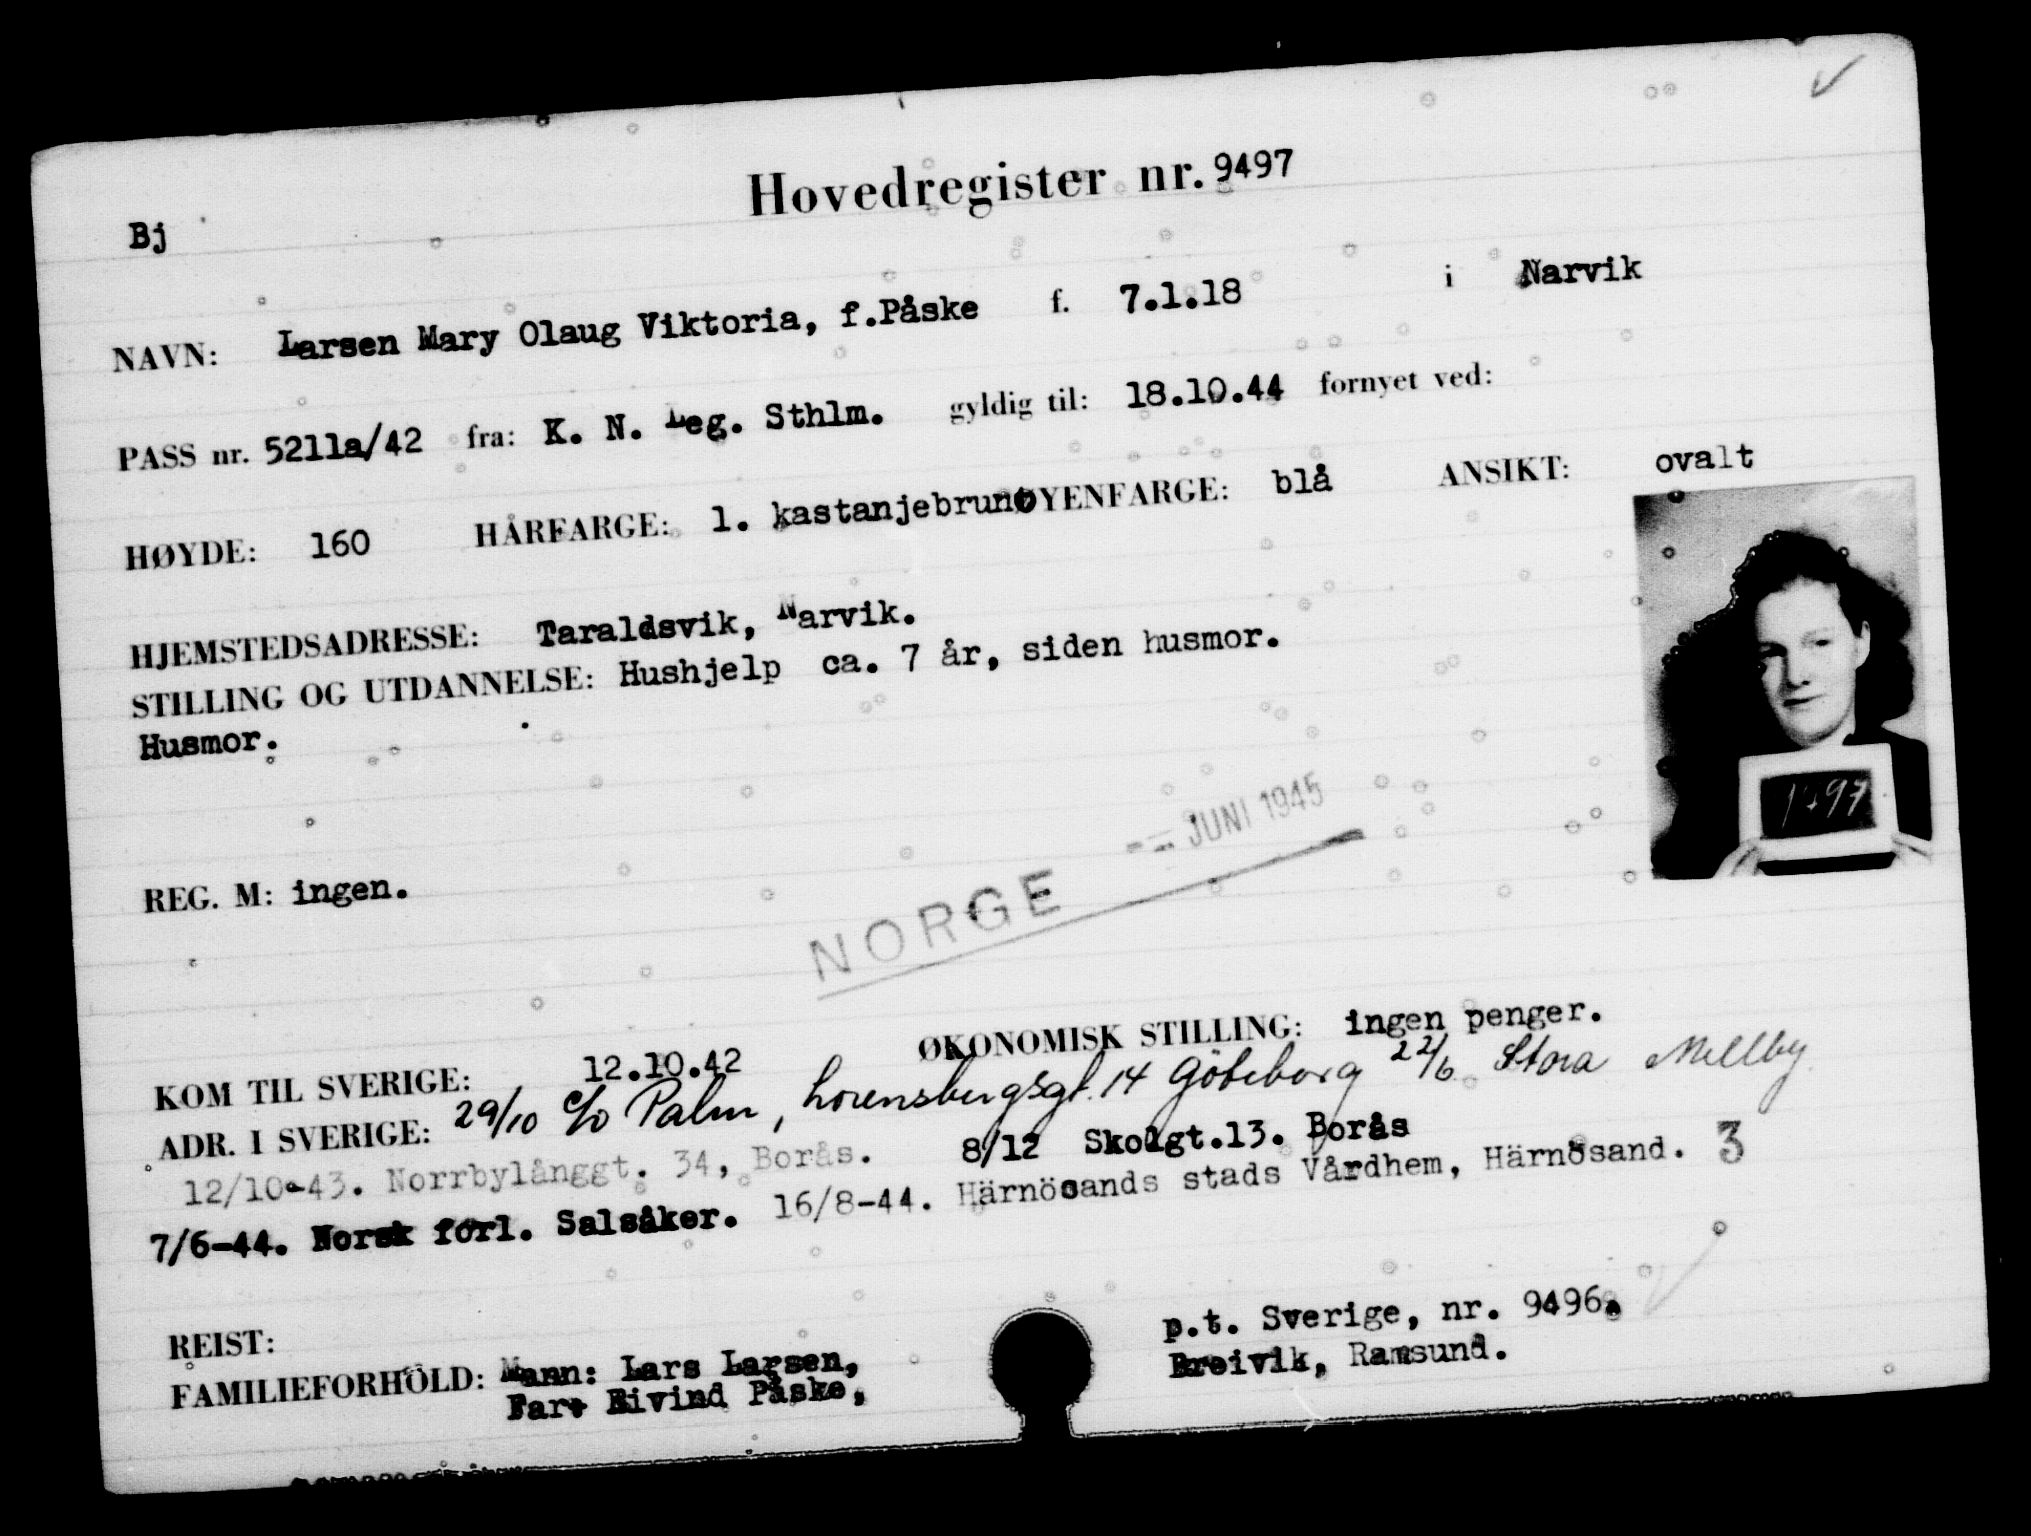 Hovedregister nr. 9497
Bj
NAVN: Larsen Mary Olaug Viktoria, f.Påske f. 7.1.18 i Narvik
PASS nr. 5211a/42 fra: K. N. Leg. Sthlm. gyldig til: 18.10.44 fornyet ved:
HØYDE: 160 HÅRFARGE: l. kastanjebrunt ØYENFARGE: blå ANSIKT: ovalt
HJEMSTEDSADRESSE: Taraldsvik, Narvik.
STILLING OG UTDANNELSE: Hushjelp ca. 7 år, siden husmor.
Husmor.
REG. M: ingen.
NORGE -- JUNI 1945
KOM TIL SVERIGE: 12.10.42 ØKONOMISK STILLING: ingen penger.
ADR. I SVERIGE: 29/10 c/o Palm, Lorensbergsgt. 14 Göteborg 22/6 Stora Mellby.
8/12 Skolgt.13. Borås
12/10-43. Norrbylånggt. 34, Borås.
7/6-44. Norsk forl. Salsåker. 16/8-44. Härnösands stads Vårdhem, Härnösand. 3
REIST:
FAMILIEFORHOLD: Mann: Lars Larsen, p.t. Sverige, nr. 9496.
Far: Eivind Påske, Breivik, Ramsund.